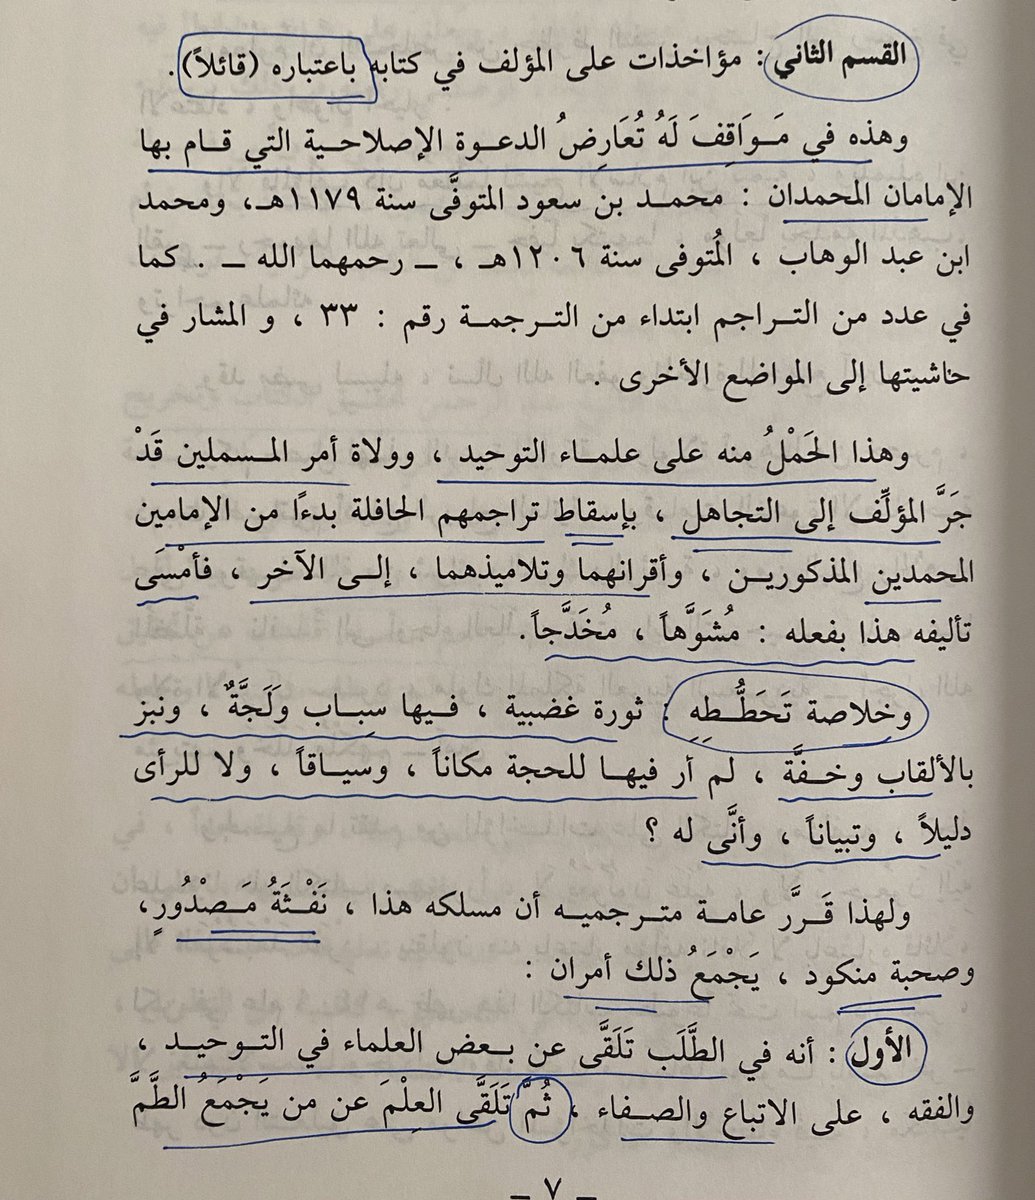 القسم الثاني : مؤاخذات على المؤلف في كتابه باعتباره (قائلاً) .
وهذه في مَوَاقِفَ لَهُ تُعَارِضُ الدعوة الإصلاحية التي قام بها
الإمامان المحمدان : محمد بن سعود المتوفَّى سنة ١١٧٩هـ، ومحمد
ابن عبد الوهاب ، المُتوفى سنة ١٢٠٦هـ ، ــ رحمهما الله ــ . كما
في عدد من التراجم ابتداء من الترجمة رقم : ٣٣ ، و المشار في
حاشيتها إلى المواضع الأخرى .
وهذا الحَمْلُ منه على علماء التوحيد ، وولاة أمر المسملين قَدْ
جَرَّ المؤلِّف إلى التجاهل ، بإسقاط تراجمهم الحافلة بدءًا من الإمامين
المحمدين المذكورين ، وأقرانهما وتلاميذهما ، إلى الآخر ، فأمْسَى
تأليفه هذا بفعله : مُشَوَّهاً ، مُخَدَّجاً.
وخلاصة تَحَطُّطِهِ : ثورة غضبية ، فيها سِبَاب وَلَجَّةٌ ، ونبز
بالألقاب وخفَّة ، لم أر فيها للحجة مكاناً ، وسياقاً ، ولا للرأى
دليلاً ، وتبياناً ، وأنَّى له ؟
ولهذا قَرَّر عامة مترجميه أن مسلكه هذا ، نَفْثَةُ مَصْدُورٍ،
وصحبة منكود ، يَجْمَعُ ذلك أمران :
الأول : أنه في الطَّلَب تَلَقَّى عن بعض العلماء في التوحيد ،
والفقه ، على الاتباع والصفاء ، ثُمَّ تَلَقَّى العِلْمَ عن من يَجْمَعُ الطَّمَّ
ــ ٧ ــ